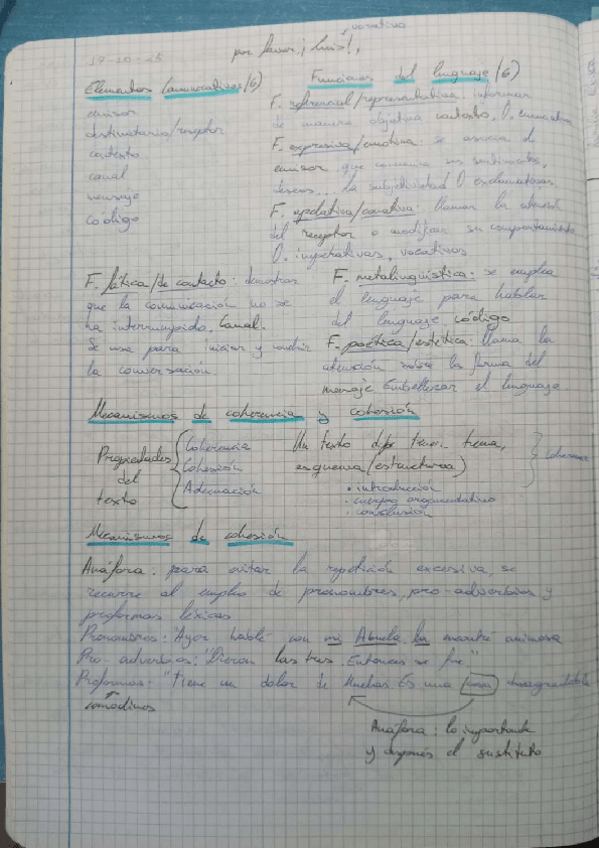 vocativo
19-10-25
por favor, ¡Luis!,
Elementos Comunicativos (6)
emisor
destinatario/receptor
contexto
canal
mensaje
código
Funciones del lenguaje (6)
F. referencial/representativa: informar
de manera objetiva contexto. O. enunciativa
F. expresiva/emotiva: se asocia al
emisor que comunica sus sentimientos,
deseos... la subjetividad O exclamativas
F. apelativa/conativa: llamar la atención
del receptor o modificar su comportamiento
O. imperativas, vocativos
F. fática/de contacto: demostrar
que la comunicación no se
ha interrumpido. Canal.
Se usa para iniciar y
la conversación
F. metalingüística: se emplea
el lenguaje para hablar
del lenguaje, código
F. poética/estética: llama la
atención sobre la forma del
mensaje Embellezar el lenguaje
Mecanismos de coherencia y cohesión
Propiedades del texto
Coherencia
Cohesión
Adecuación
Un texto debe tener tema,
esquema (estructura)
· introducción
· cuerpo argumentativo
· conclusión
Coherencia
Mecanismos de cohesión
Anáfora: para evitar la repetición excesiva, se
recurre al empleo de pronombres, pro-adverbios y
proformas léxicas
Pronombres: "Ayer hablé con mi Abuela. La encontré animosa
Pro-adverbios: "Dieron las tres. Entonces se fue."
Proformas: "Tiene un dolor de Muelas Es una cosa desagradable
comodines
Anáfora: lo importante
y después el sustituto